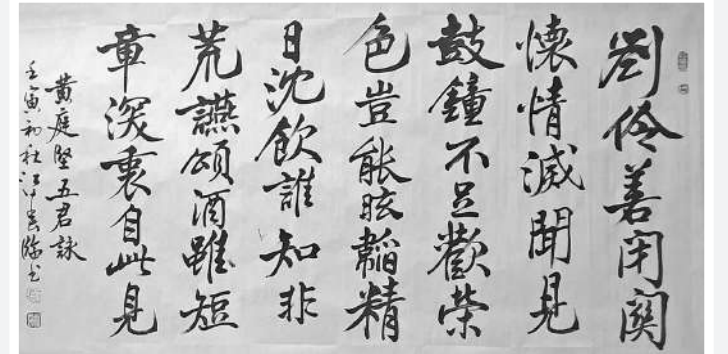 劉伶善閉關
懷情滅聞見
鼓鐘不足歡榮
色豈能眩韜精
日沈飲誰知非
荒讌頌酒雖短
章深衷自此見
黄庭堅五君詠
壬寅初秋江